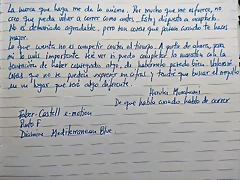 La marca que haga me da lo mismo. Por mucho que me esfuerce, no
creo que pueda volver a correr como antes. Estoy dispuesto a aceptarlo.
No es demasiado agradable, pero son cosas que pasan cuando te haces
mayor.
Lo que cuenta no es competir contra el tiempo. A partir de ahora, para
mí lo más importante será ver si puedo completar la maratón con la
sensación de haber conseguido algo, de habérmelo pasado bien. Valoraré
cosas que no se pueden expresar en cifras y tendré que buscar el orgullo
en un lugar que será algo diferente.
Haruki Murakami
De que hablo cuando hablo de correr
Faber-Castell e-motion
Punto F
Diamine Mediterranean Blue